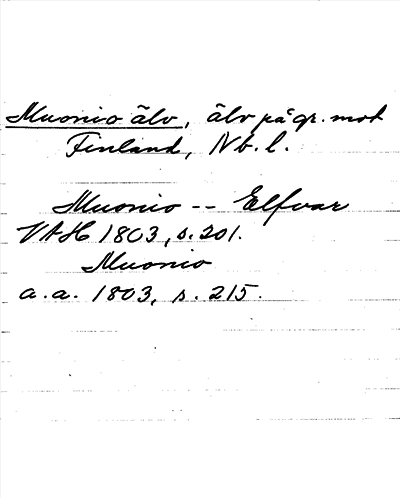 Muonio älv, älv på gr. mot
Finland, Nb. l.
Muonio -- Elfvar
VAH 1803, s. 201.
Muonio
a. a. 1803, s. 215.